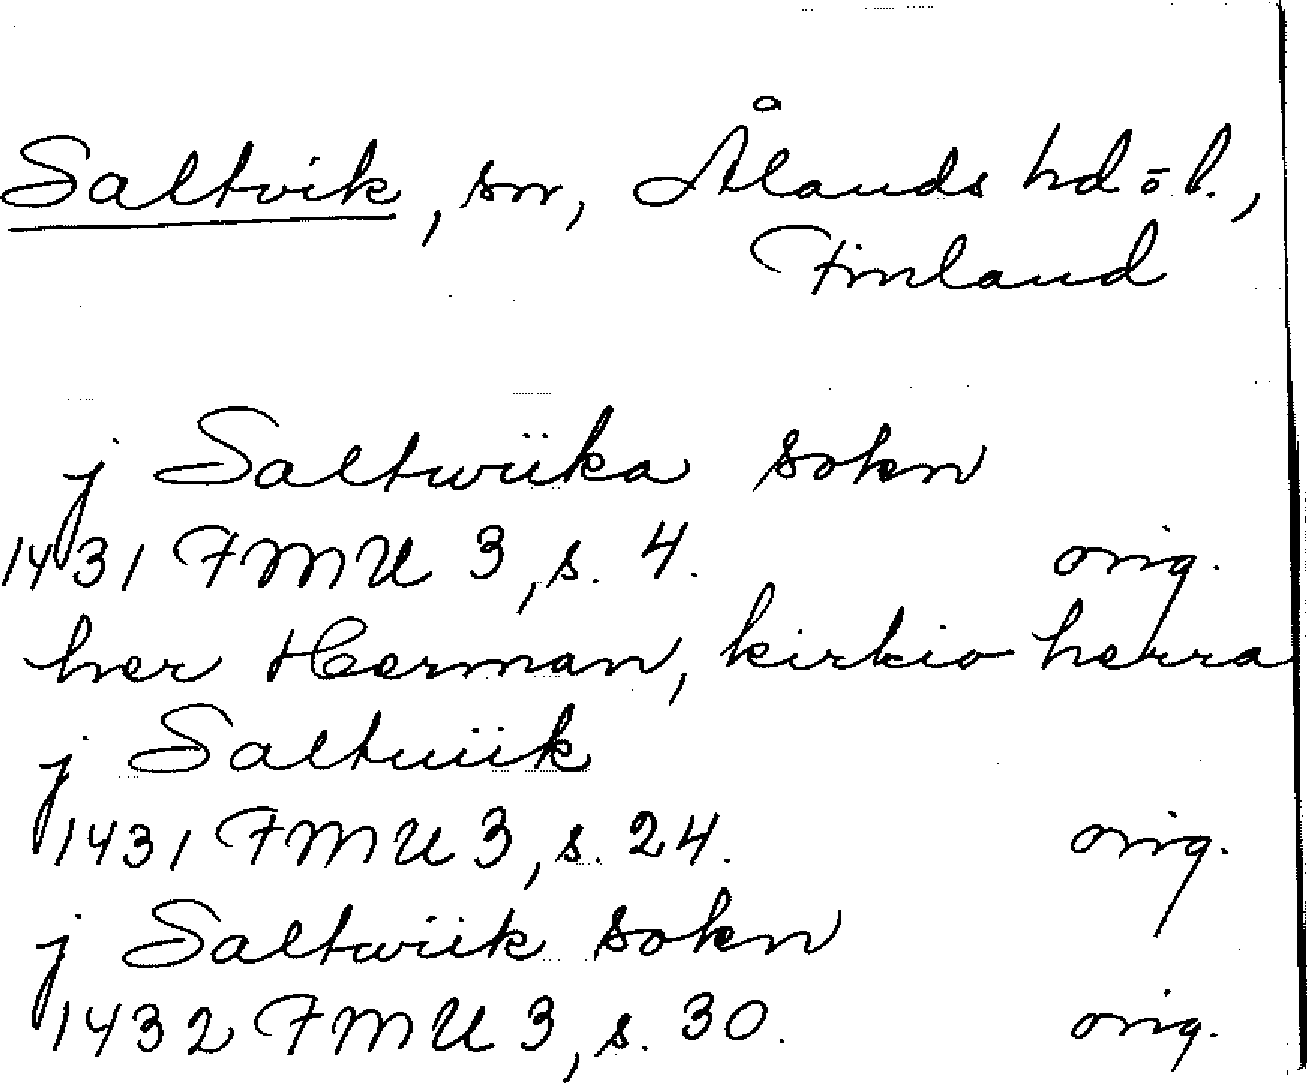 Saltvik, sn, Ålands hd o l.,
Finland
j Saltwiika sokn
1431 FMU 3, s. 4. orig.
her Herman, kirkio herra
j Saltuiik
1431 FMU 3, s. 24. orig.
j Saltwiik sokn
1432 FMU 3, s. 30. orig.